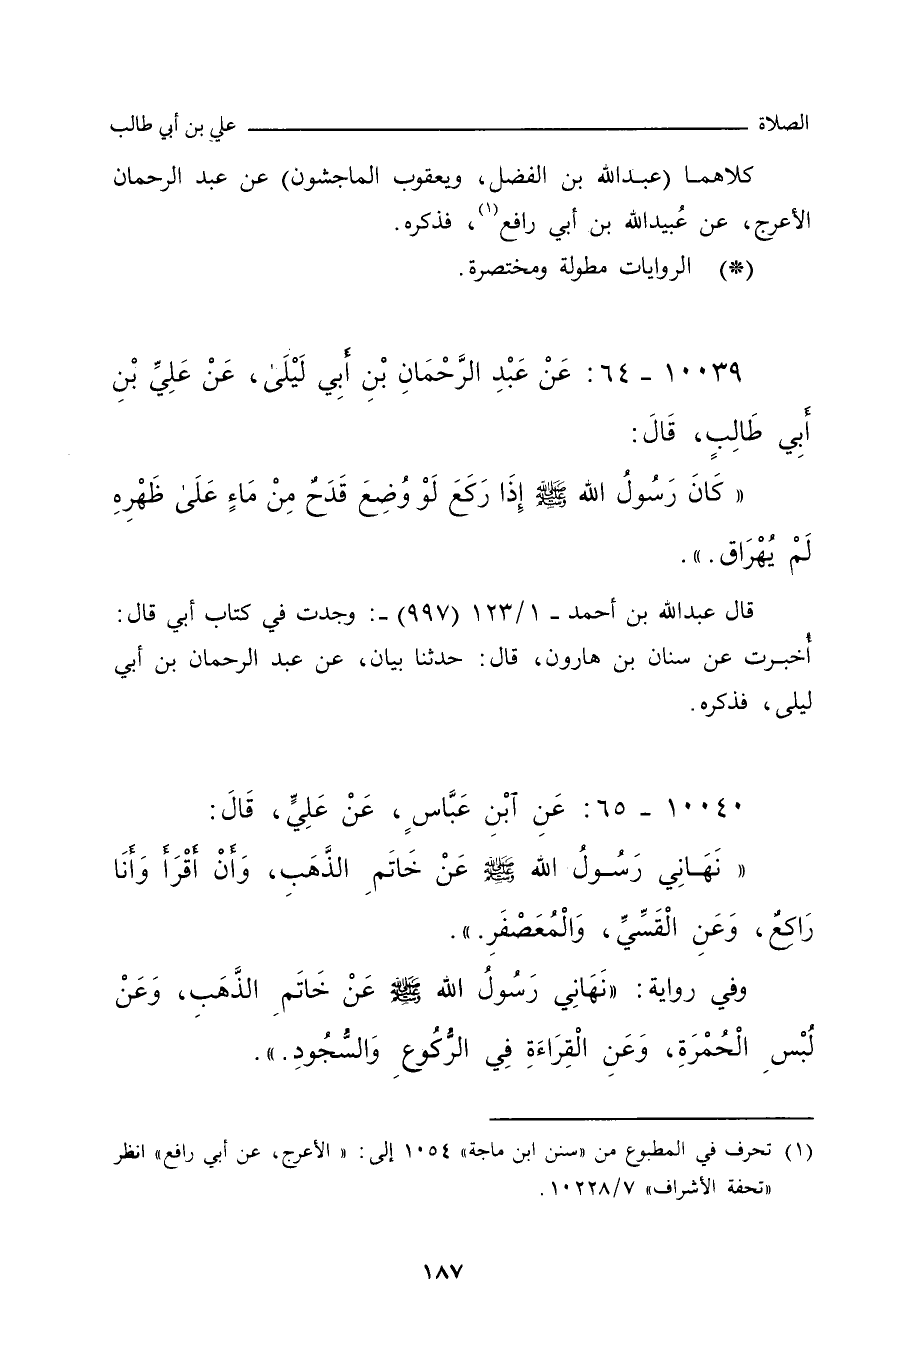 الصلاة ــــــــــــــــ علي بن أبي طالب
كلاهمـا (عبـدالله بن الفضل، ويعقوب الماجشون) عن عبد الرحمان
الأعرج، عن عُبيدالله بن أبي رافع(١)، فذكره.
(*) الروايات مطولة ومختصرة.
١٠٠٣٩ ـ ٦٤: عَنْ عَبْدِ الرَّحْمَانِ بْنِ أَبِي لَيْلَىٰ، عَنْ عَلِيِّ بْنِ
أَبِي طَالِبٍ، قَالَ:
« كَانَ رَسُولُ الله ﷺ إِذَا رَكَعَ لَوْ وُضِعَ قَدَحٌ مِنْ مَاءٍ عَلَىٰ ظَهْرِهِ
لَمْ يُهْرَاق.».
قال عبدالله بن أحمد ـ ١/ ١٢٣ (٩٩٧) ـ: وجدت في كتاب أبي قال:
أُخبـرت عن سنان بن هارون، قال: حدثنا بيان، عن عبد الرحمان بن أبي
ليلى، فذكره.
١٠٠٤٠ ـ ٦٥: عَنِ آبْنِ عَبَّاسٍ، عَنْ عَلِيٍّ، قَالَ:
« نَهَـانِي رَسُـولُ الله ﷺ عَنْ خَاتَمِ الذَّهَبِ، وَأَنْ أَقْرَأَ وَأَنَا
رَاكِعٌ، وَعَنِ الْقَسِّيِّ، وَالْمُعَصْفَرِ.».
وفي رواية: «نَهَانِي رَسُولُ الله ﷺ عَنْ خَاتَمِ الذَّهَبِ، وَعَنْ
لُبْسِ الْحُمْرَةِ، وَعَنِ الْقِرَاءَةِ فِي الرُّكُوعِ وَالسُّجُودِ.».
(١) تحرف في المطبوع من «سنن ابن ماجة» ١٠٥٤ إلى: « الأعرج، عن أبي رافع» انظر
«تحفة الأشراف» ٧/ ١٠٢٢٨.
١٨٧